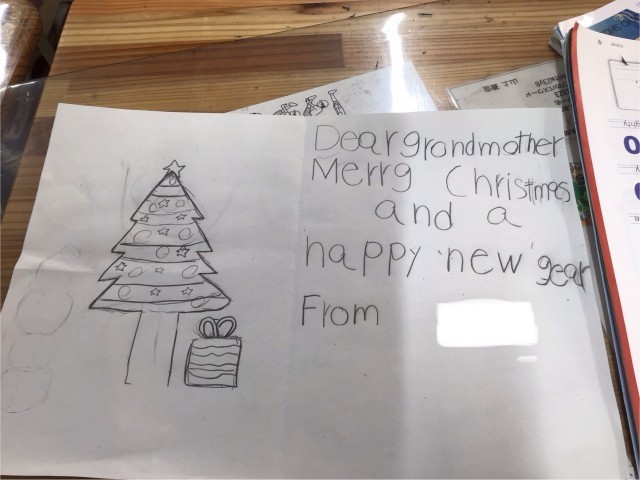 Dear grandmother
Merry Christmas
and a
happy new year
From